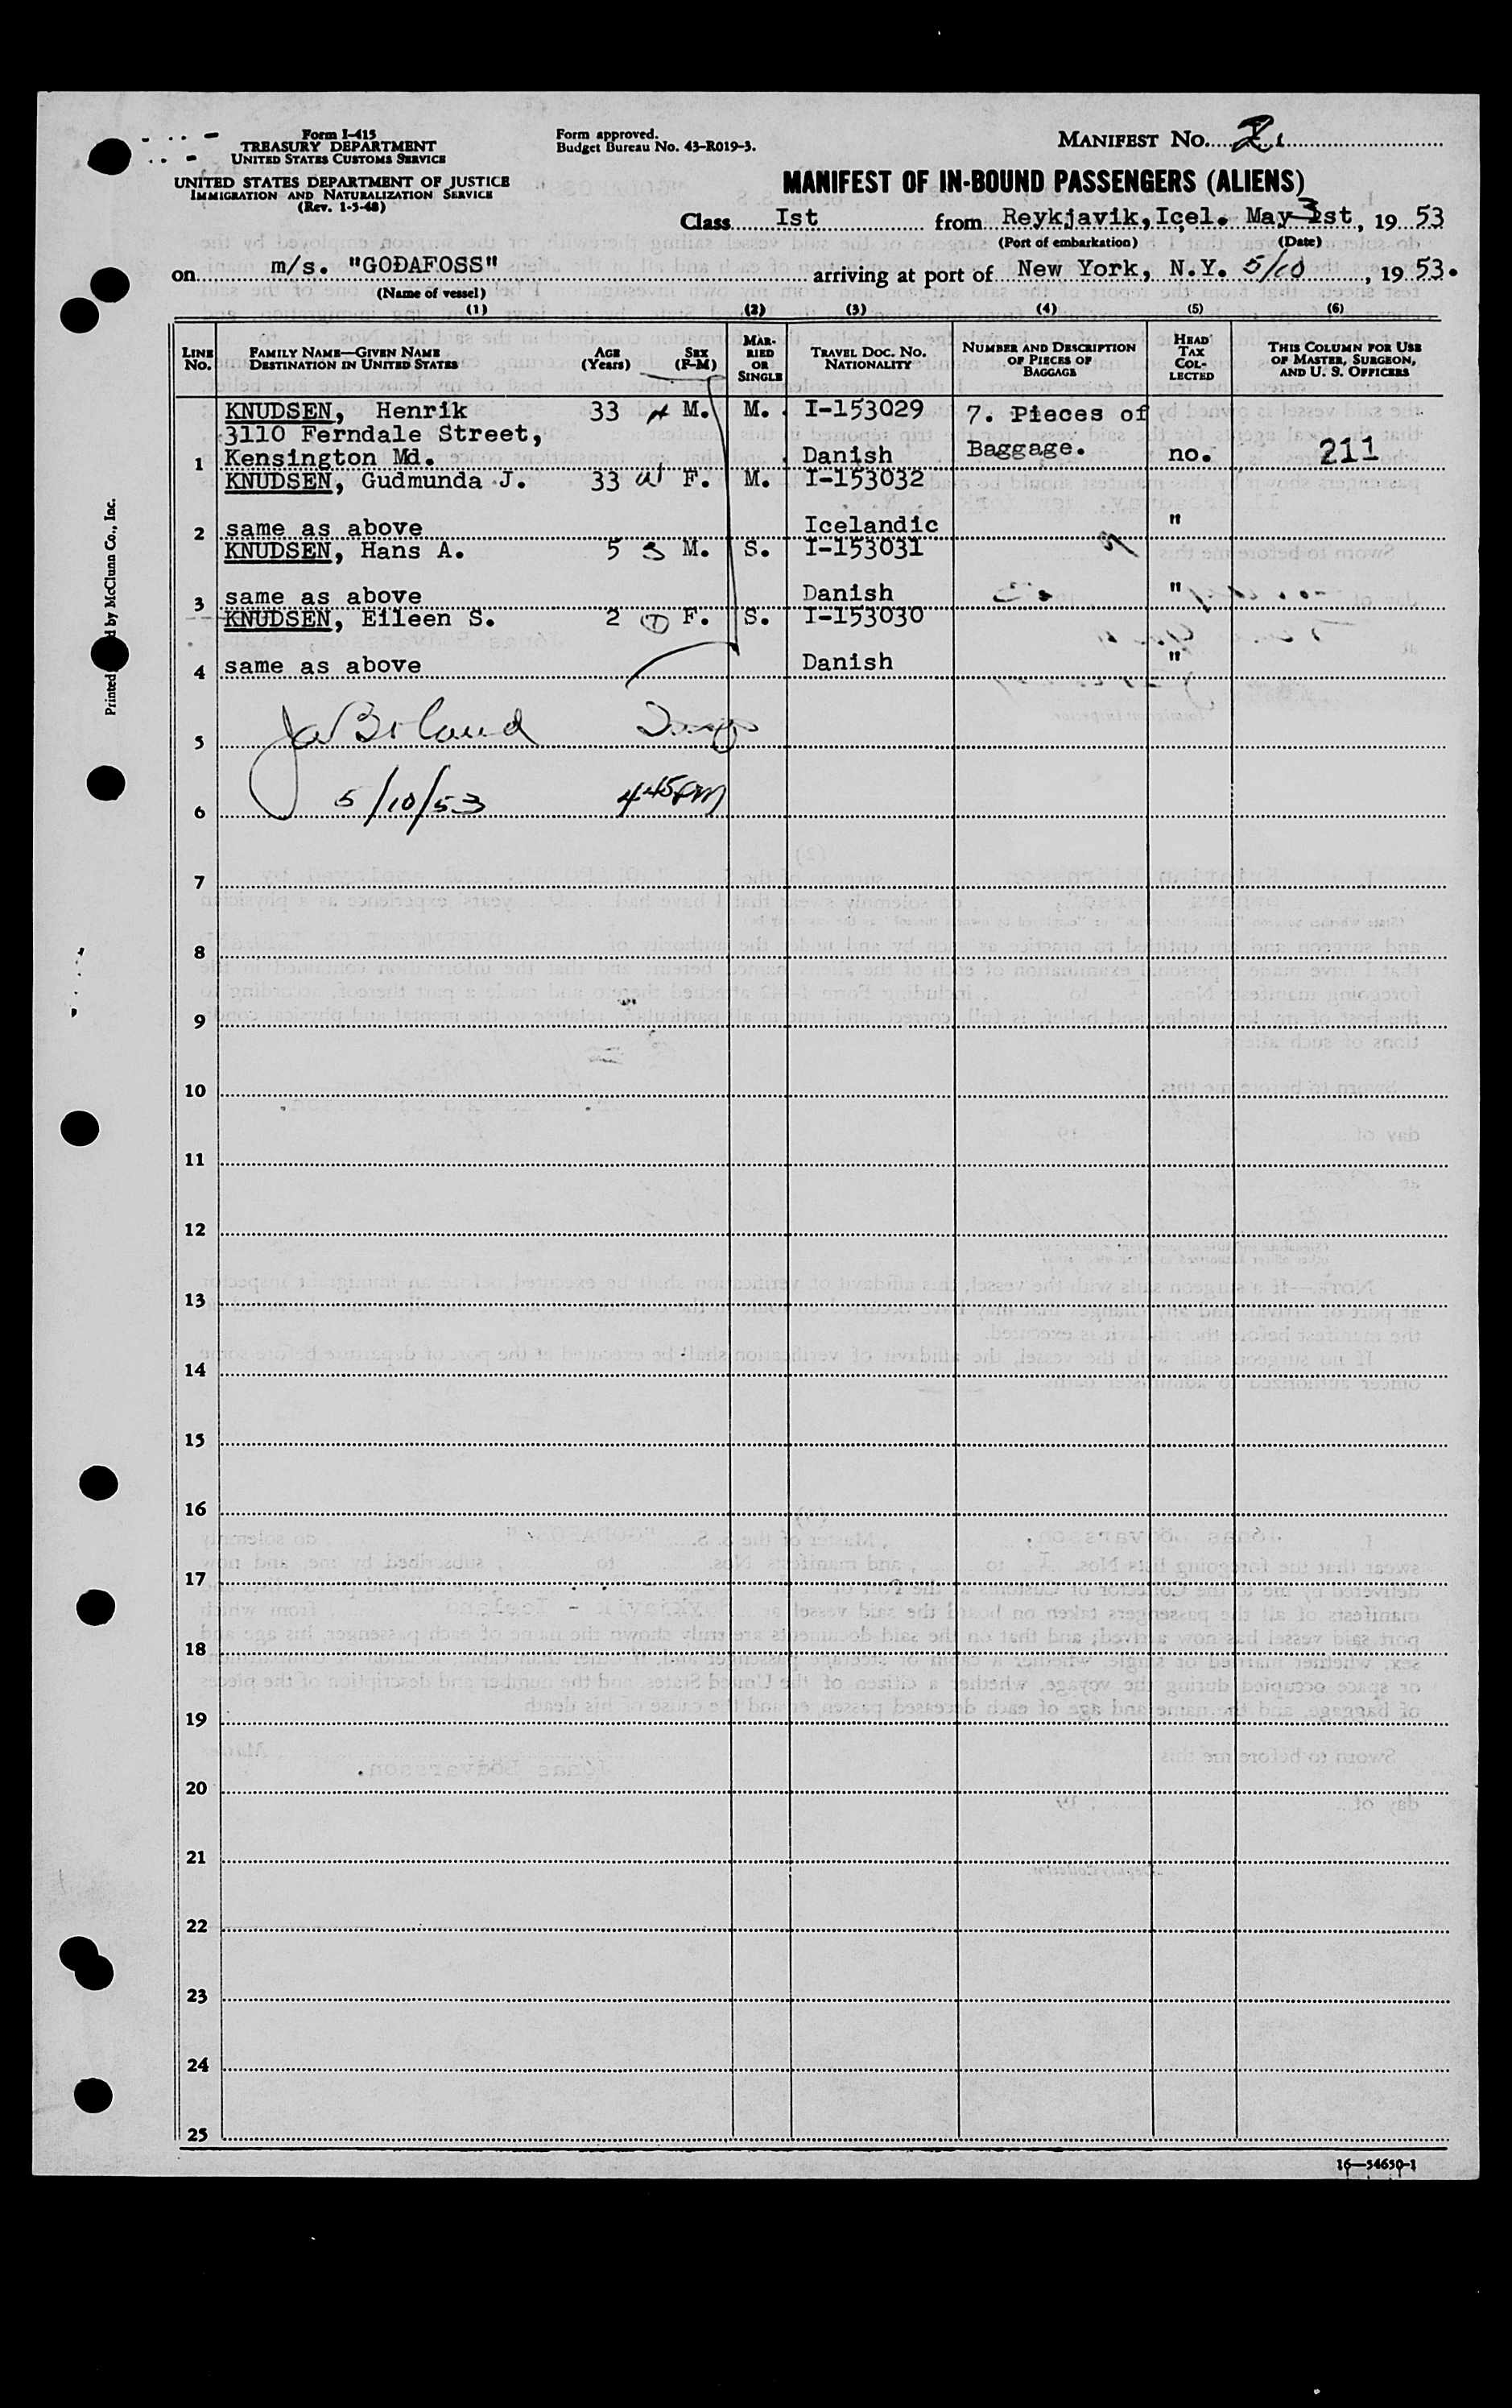 Form I-415
TREASURY DEPARTMENT
UNITED STATES CUSTOMS SERVICE
UNITED STATES DEPARTMENT OF JUSTICE
IMMIGRATION AND NATURALIZATION SERVICE
(Rev. 1-5-48)
Form approved.
Budget Bureau No. 43-R019-3.
MANIFEST NO.
MANIFEST OF IN-BOUND PASSENGERS (ALIENS)
Class Ist from Reykjavik, Icel. May 1st, 19 53
(Port of embarkation) (Date)
on m/s. "GODAFOSS" arriving at port of New York, N.Y. 5/10, 19 53.
(Name of vessel)
(1) (2) (3) (4) (5) (6)
LINE NO. FAMILY NAME—GIVEN NAME DESTINATION IN UNITED STATES AGE (Years) SEX (F-M) MARRIED OR SINGLE TRAVEL DOC. NO. NATIONALITY NUMBER AND DESCRIPTION OF PIECES OF BAGGAGE HEAD TAX COLLECTED THIS COLUMN FOR USE OF MASTER, SURGEON, AND U. S. OFFICERS
KNUDSEN, Henrik 33 H M. M. I-153029 7. Pieces of
3110 Ferndale Street,
1 Kensington Md. Danish Baggage. no. 211
KNUDSEN, Gudmunda J. 33 W F. M. I-153032
2 same as above Icelandic "
KNUDSEN, Hans A. 5 S M. S. I-153031
3 same as above Danish "
KNUDSEN, Eileen S. 2 D F. S. I-153030
4 same as above Danish "
5 Boland
6 5/10/53 4 45 PM
7
8
9
10
11
12
13
14
15
16
17
18
19
20
21
22
23
24
25
16—54650-1
Printed by McClunn Co., Inc.